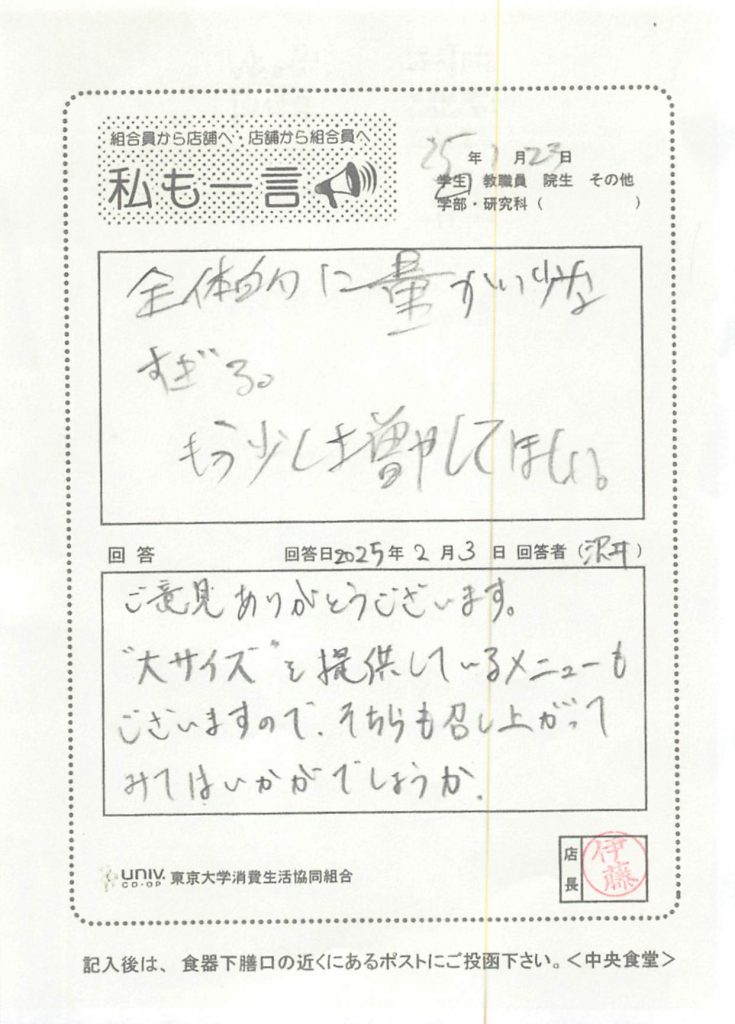 組合員から店舗へ・店舗から組合員へ
私も一言
25年1月23日
学生 教職員 院生 その他
学部・研究科( )
全体的に量がい少な
すぎる。
もう少しは増やしてほしい。
回答 回答日2025年2月3日 回答者(沢井)
ご意見ありがとうございます。
"大サイズ"を提供しているメニューも
ございますので、そちらも召し上がって
みてはいかがでしょうか.
店長 伊藤
UNIV. CO-OP 東京大学消費生活協同組合
記入後は、食器下膳口の近くにあるポストにご投函下さい。<中央食堂>